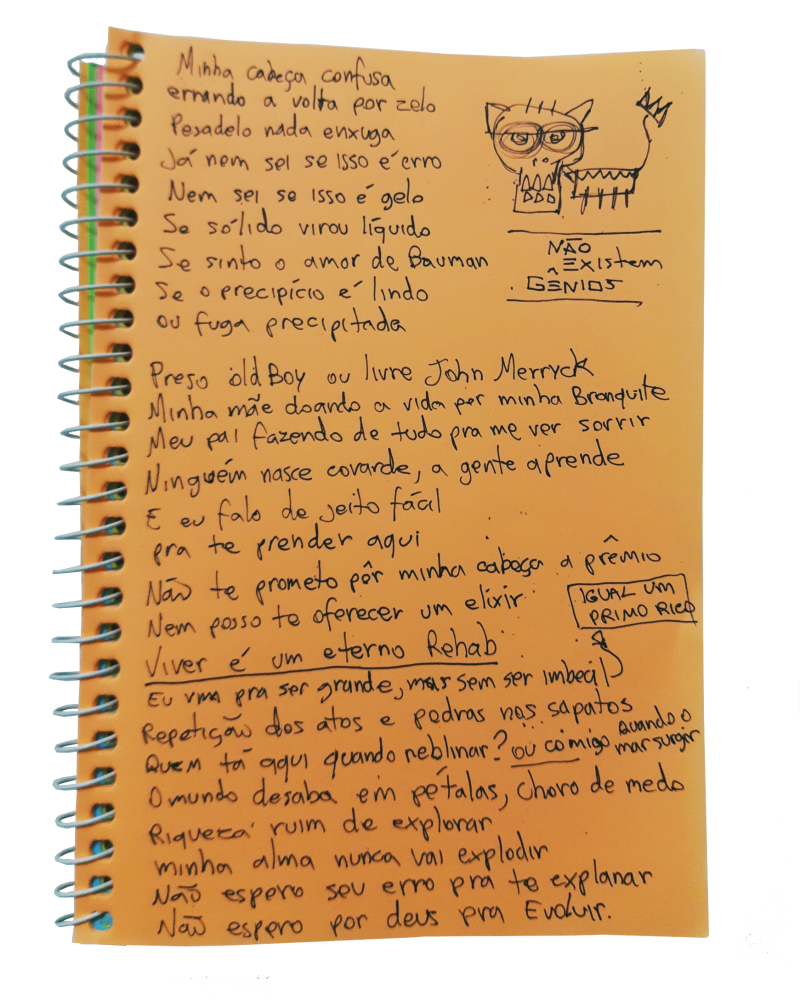 Minha cabeça confusa
errando a volta por zelo
Pesadelo nada enxuga
Já nem sei se isso é erro
Nem sei se isso é gelo
Se sólido virou líquido
Se sinto o amor de Bauman
Se o precipício é lindo
ou fuga precipitada
NÃO
EXISTEM
GÊNIOS
Preso old Boy ou livre John Merryck
Minha mãe doando a vida por minha Bronquite
Meu pai fazendo de tudo pra me ver sorrir
Ninguém nasce covarde, a gente aprende
E eu falo de jeito fácil
pra te prender aqui
Não te prometo pôr minha cabeça a prêmio
Nem posso te oferecer um elixir
Viver é um eterno Rehab
Eu vim pra ser grande, mas sem ser imbecil
IGUAL UM
PRIMO RICO
Repetição dos atos e pedras nos sapatos
Quem tá aqui quando neblinar? ou comigo Quando o
mar surgir
O mundo desaba em pétalas, choro de medo
Riqueza ruim de explorar
minha alma nunca vai explodir
Não espero seu erro pra te explanar
Não espero por deus pra Evoluir.